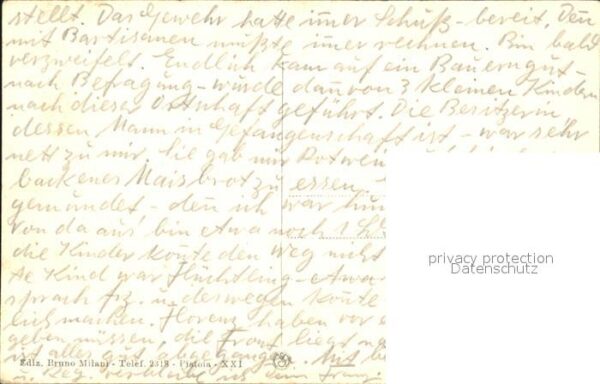 stellt. Das Gewehr hatte im̅er Schuß-bereit. Den̅
mit Bartisanen mußte im̅er rechnen. Bin bald
verzweifelt. Endlich kam auf ein Bauerngut-
nach Befragung-wurde dan̅ von 3 kleinen Kindern
nach dieser Ortschaft geführt. Die Besitzerin
dessen Mann in Gefangenschaft ist - war sehr
nett zu mir. Sie gab mir Rotwein
backenes Maisbrot zu essen.
gemundet - den̅ ich war hun
Von da aus bin etwa noch 1
die Kinder kon̅te den Weg nicht
te Kind war Flüchtling - etwa
sprach frz. u. deswegen kon̅te
lich machen. Florenz haben vor
geben müssen, die Front liegt
ist alles gut abgegangen. Mit
privacy protection
Datenschutz
Edlz. Bruno Milani - Telef. 2318 - Pistoia - XXI